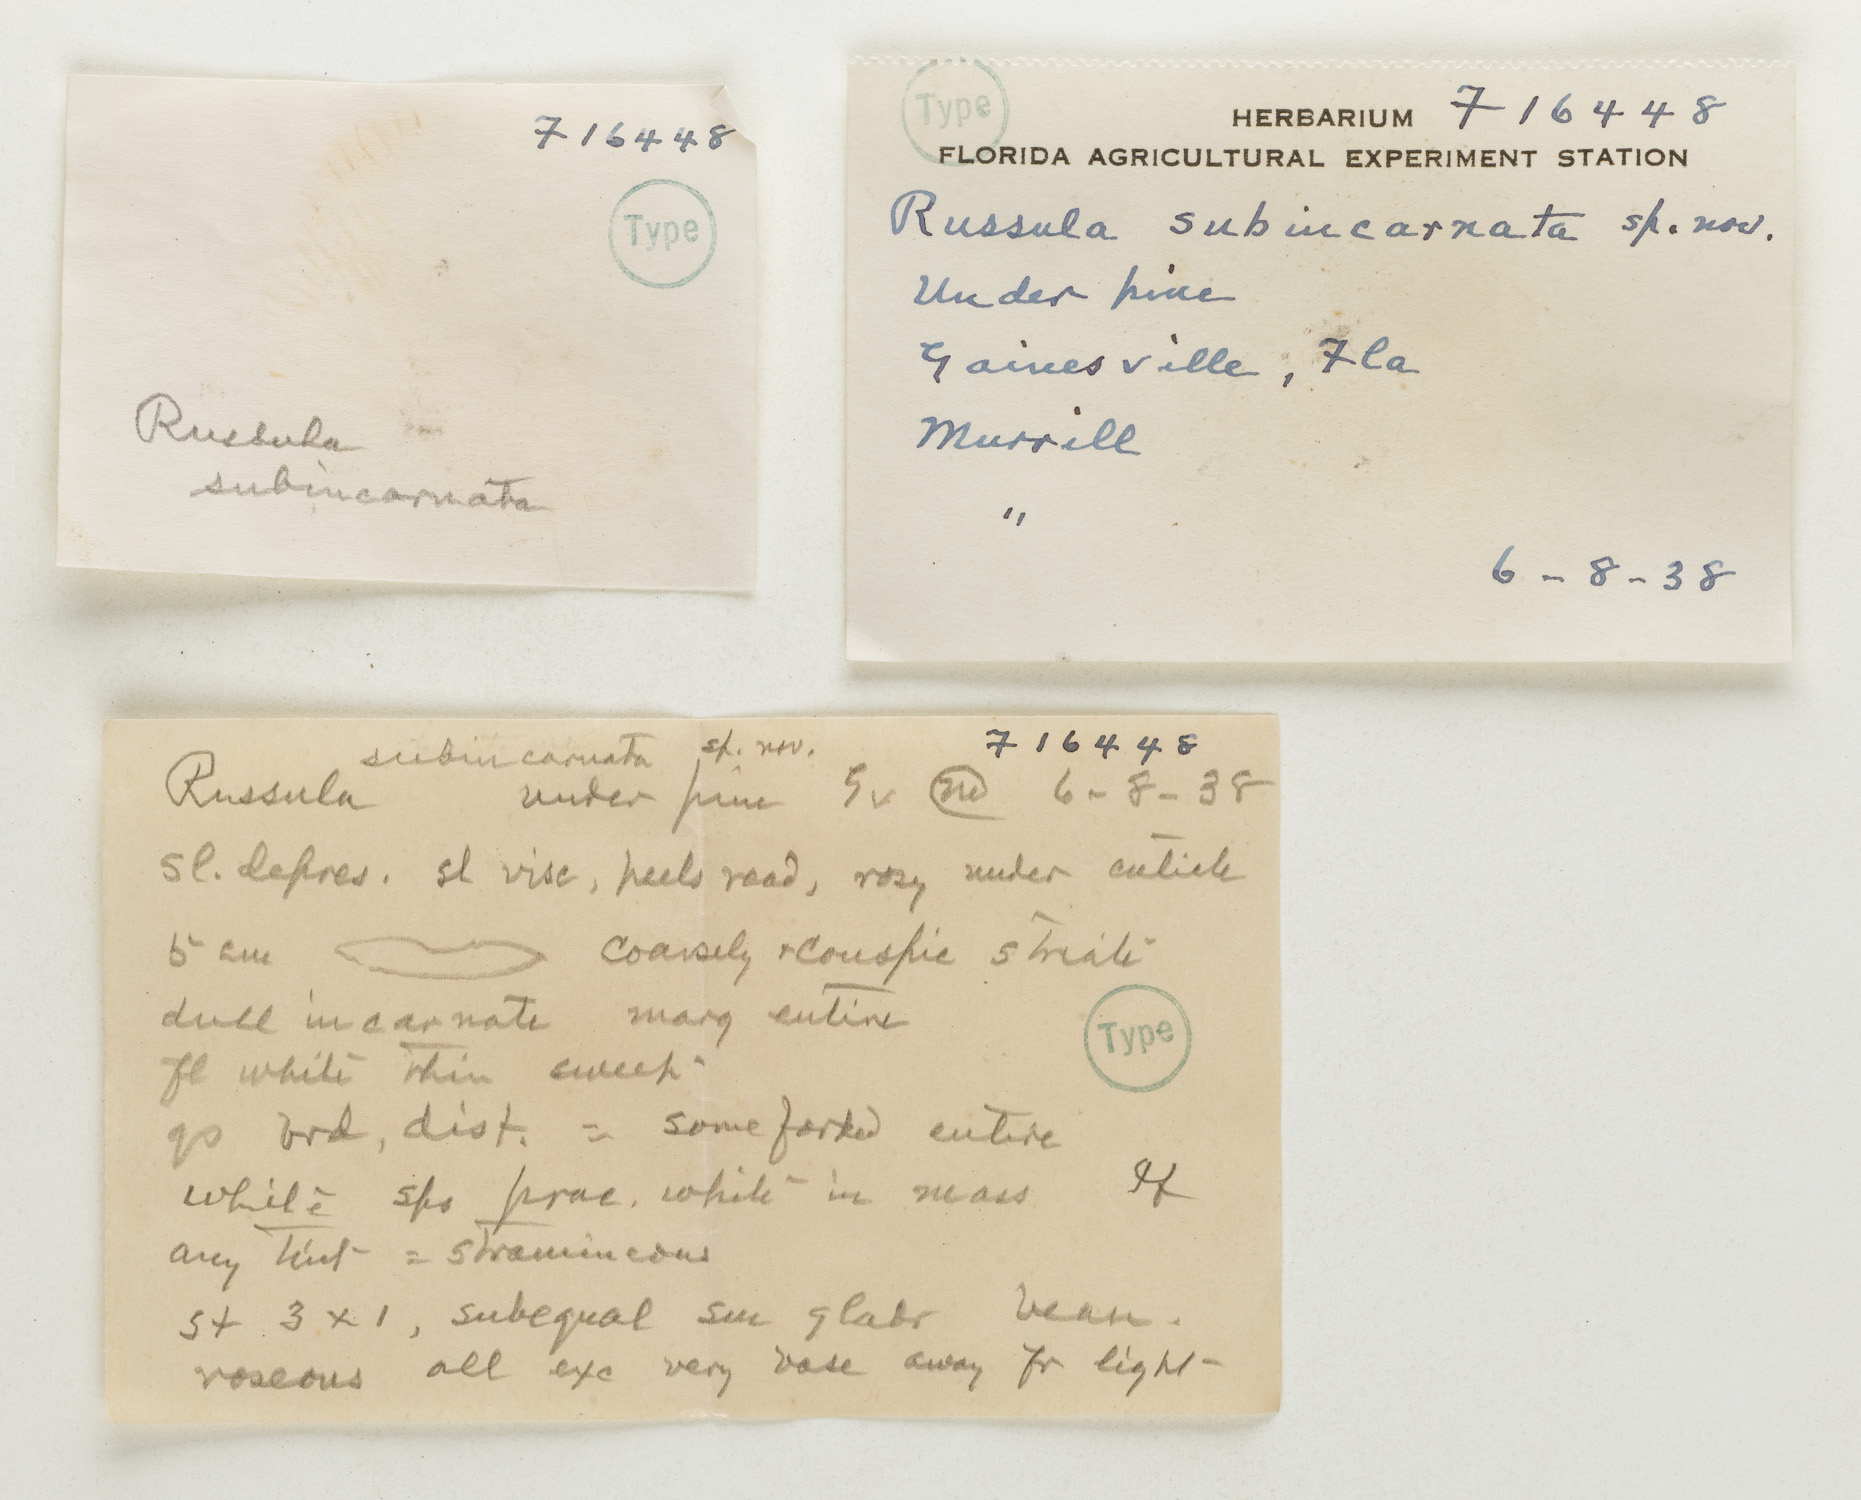 F16448
Type
Russula
subincarnata
Type
HERBARIUM F16448
FLORIDA AGRICULTURAL EXPERIMENT STATION
Russula subincarnata sp. nov.
Under pine
Gainesville, Fla
Murrill
"
6-8-38
subincarnata sp. nov. F16448
Russula under pine Gv 6-8-38
sl. depres. sl visc, peels read, rosy under cuticle
5 cm coarsely + conspic striate
dull incarnate marg entire
Type
fl white thin sweet
gs brd, dist. = some forked entire
white sps prac. white in mass If
any tint = stramineous
st 3 x 1, subequal sm glabr beau.
roseous all exc very base away fr light